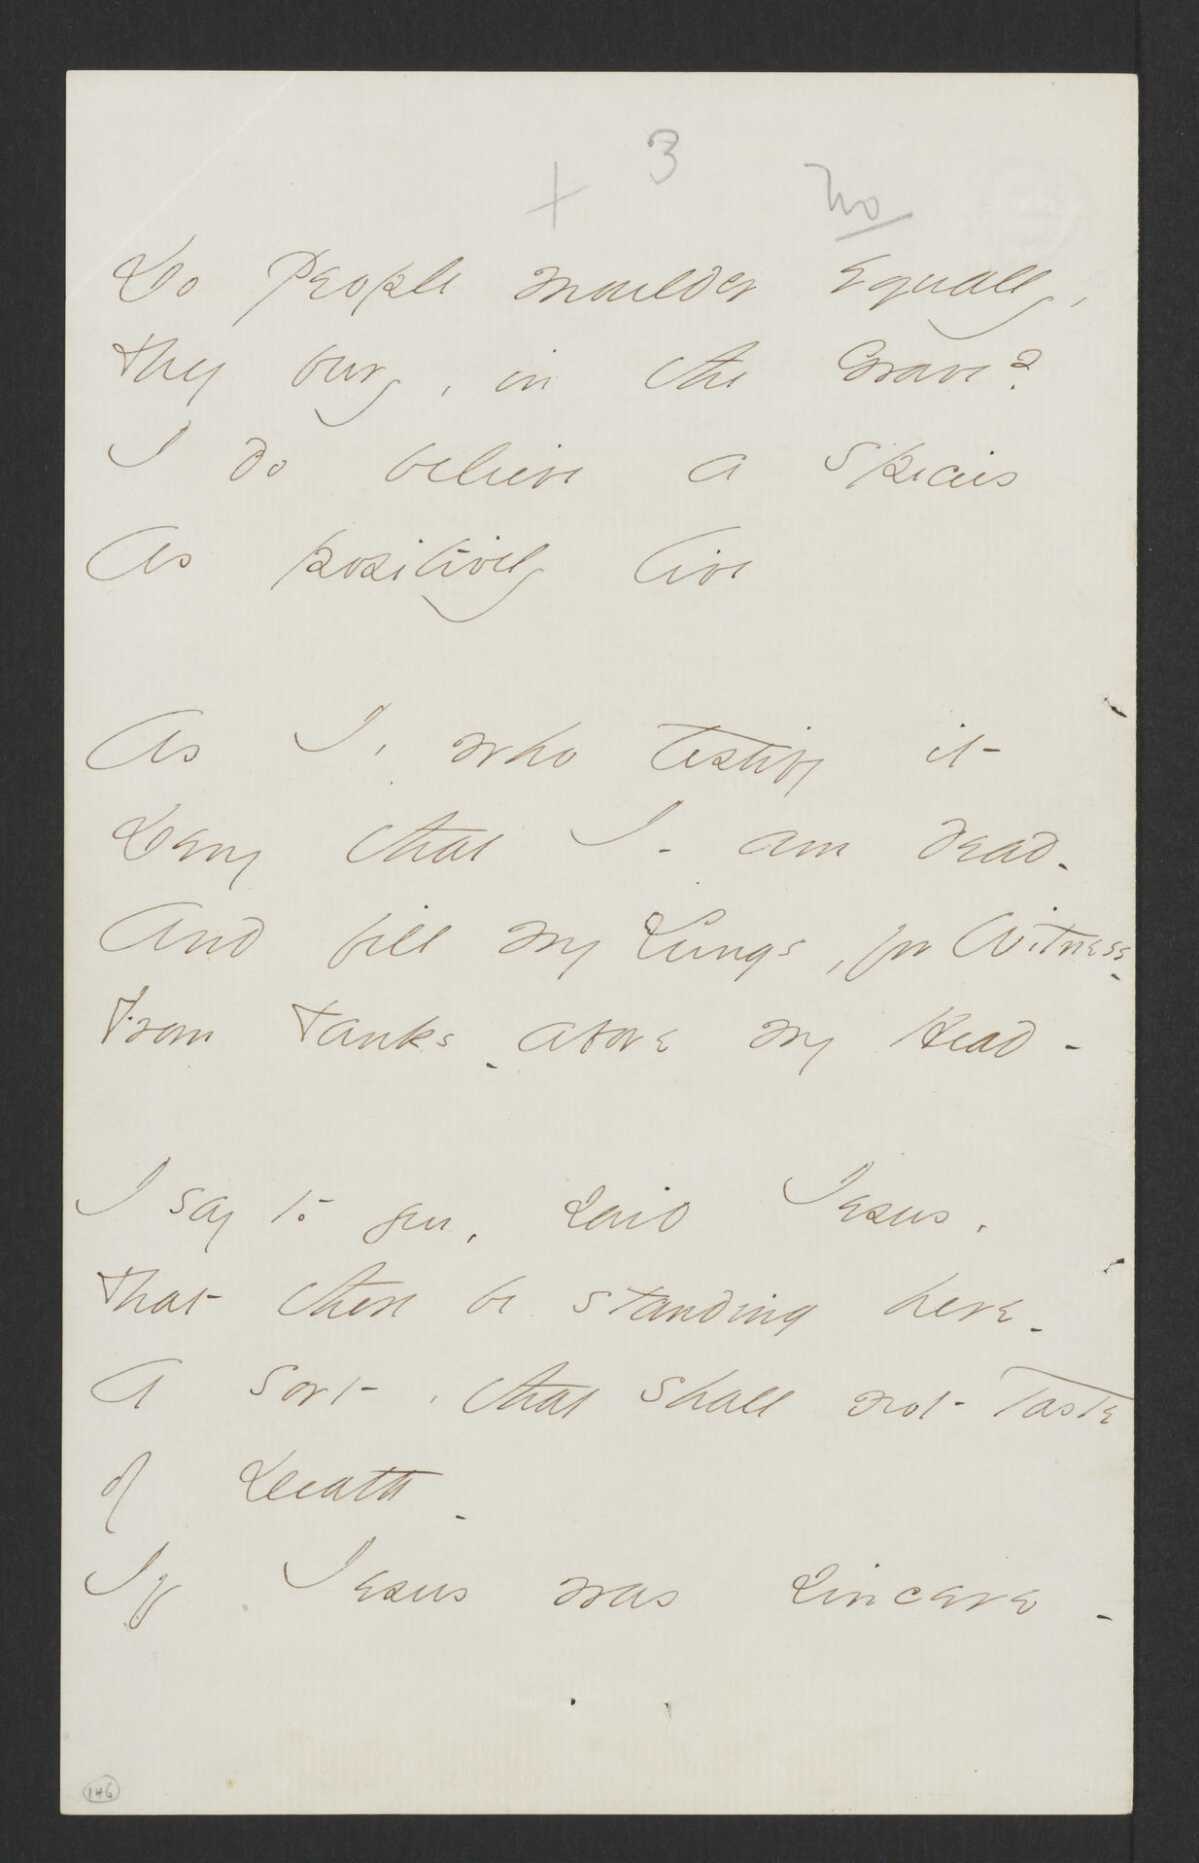 + 3 no
Do People moulder Equally,
they bury, in the Grave?
I do believe a Species
As positively live
As I, who testify it
Deny that I - am dead -
And fill my Lungs, for Witness -
From Tanks - above my Head -
I say to you, said Jesus,
That there be standing here -
A Sort, that shall not Taste
of Death -
If Jesus was sincere -
146